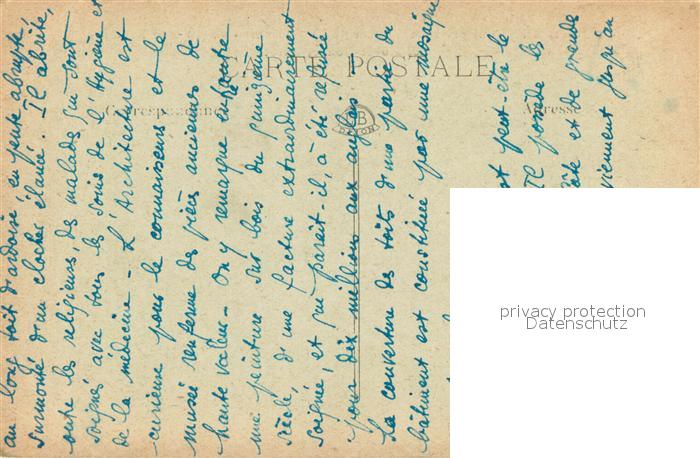 au long toit d'ardoise en pente abrupte
surmonté d'un clocher élancé. Il abrite,
outre les religieuses, des malades qui sont
soignés avec tous les soins de l'Hygiène et
de la médecine - L'Architecture est
curieuse pour le connaisseur et le
musée renferme des pièces anciennes de
haute valeur - On y remarque entre autre
une peinture sur bois du quinzième
siècle, d'une facture extraordinairement
soignée, et qui paraît-il, a été estimé
pour dix millions aux anglais
La couverture des toits d'une partie du
bâtiment est constitué par une mosaïque
est peut-être le
Il possède les
et de grands
viennent jusqu'au
CARTE POSTALE
Correspondance
Adresse
LB
DIJON
privacy protection
Datenschutz